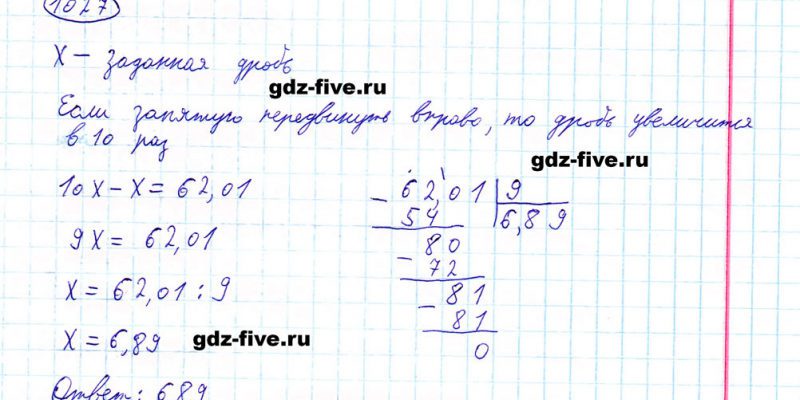 1027
X – заданная дробь
gdz-five.ru
Если запятую передвинуть вправо, то дробь увеличится
в 10 раз
gdz-five.ru
10X – X = 62,01
9X = 62,01
X = 62,01 : 9
X = 6,89
gdz-five.ru
62,01 | 9
54 | 6,89
80
72
81
81
0
Ответ: 6,89